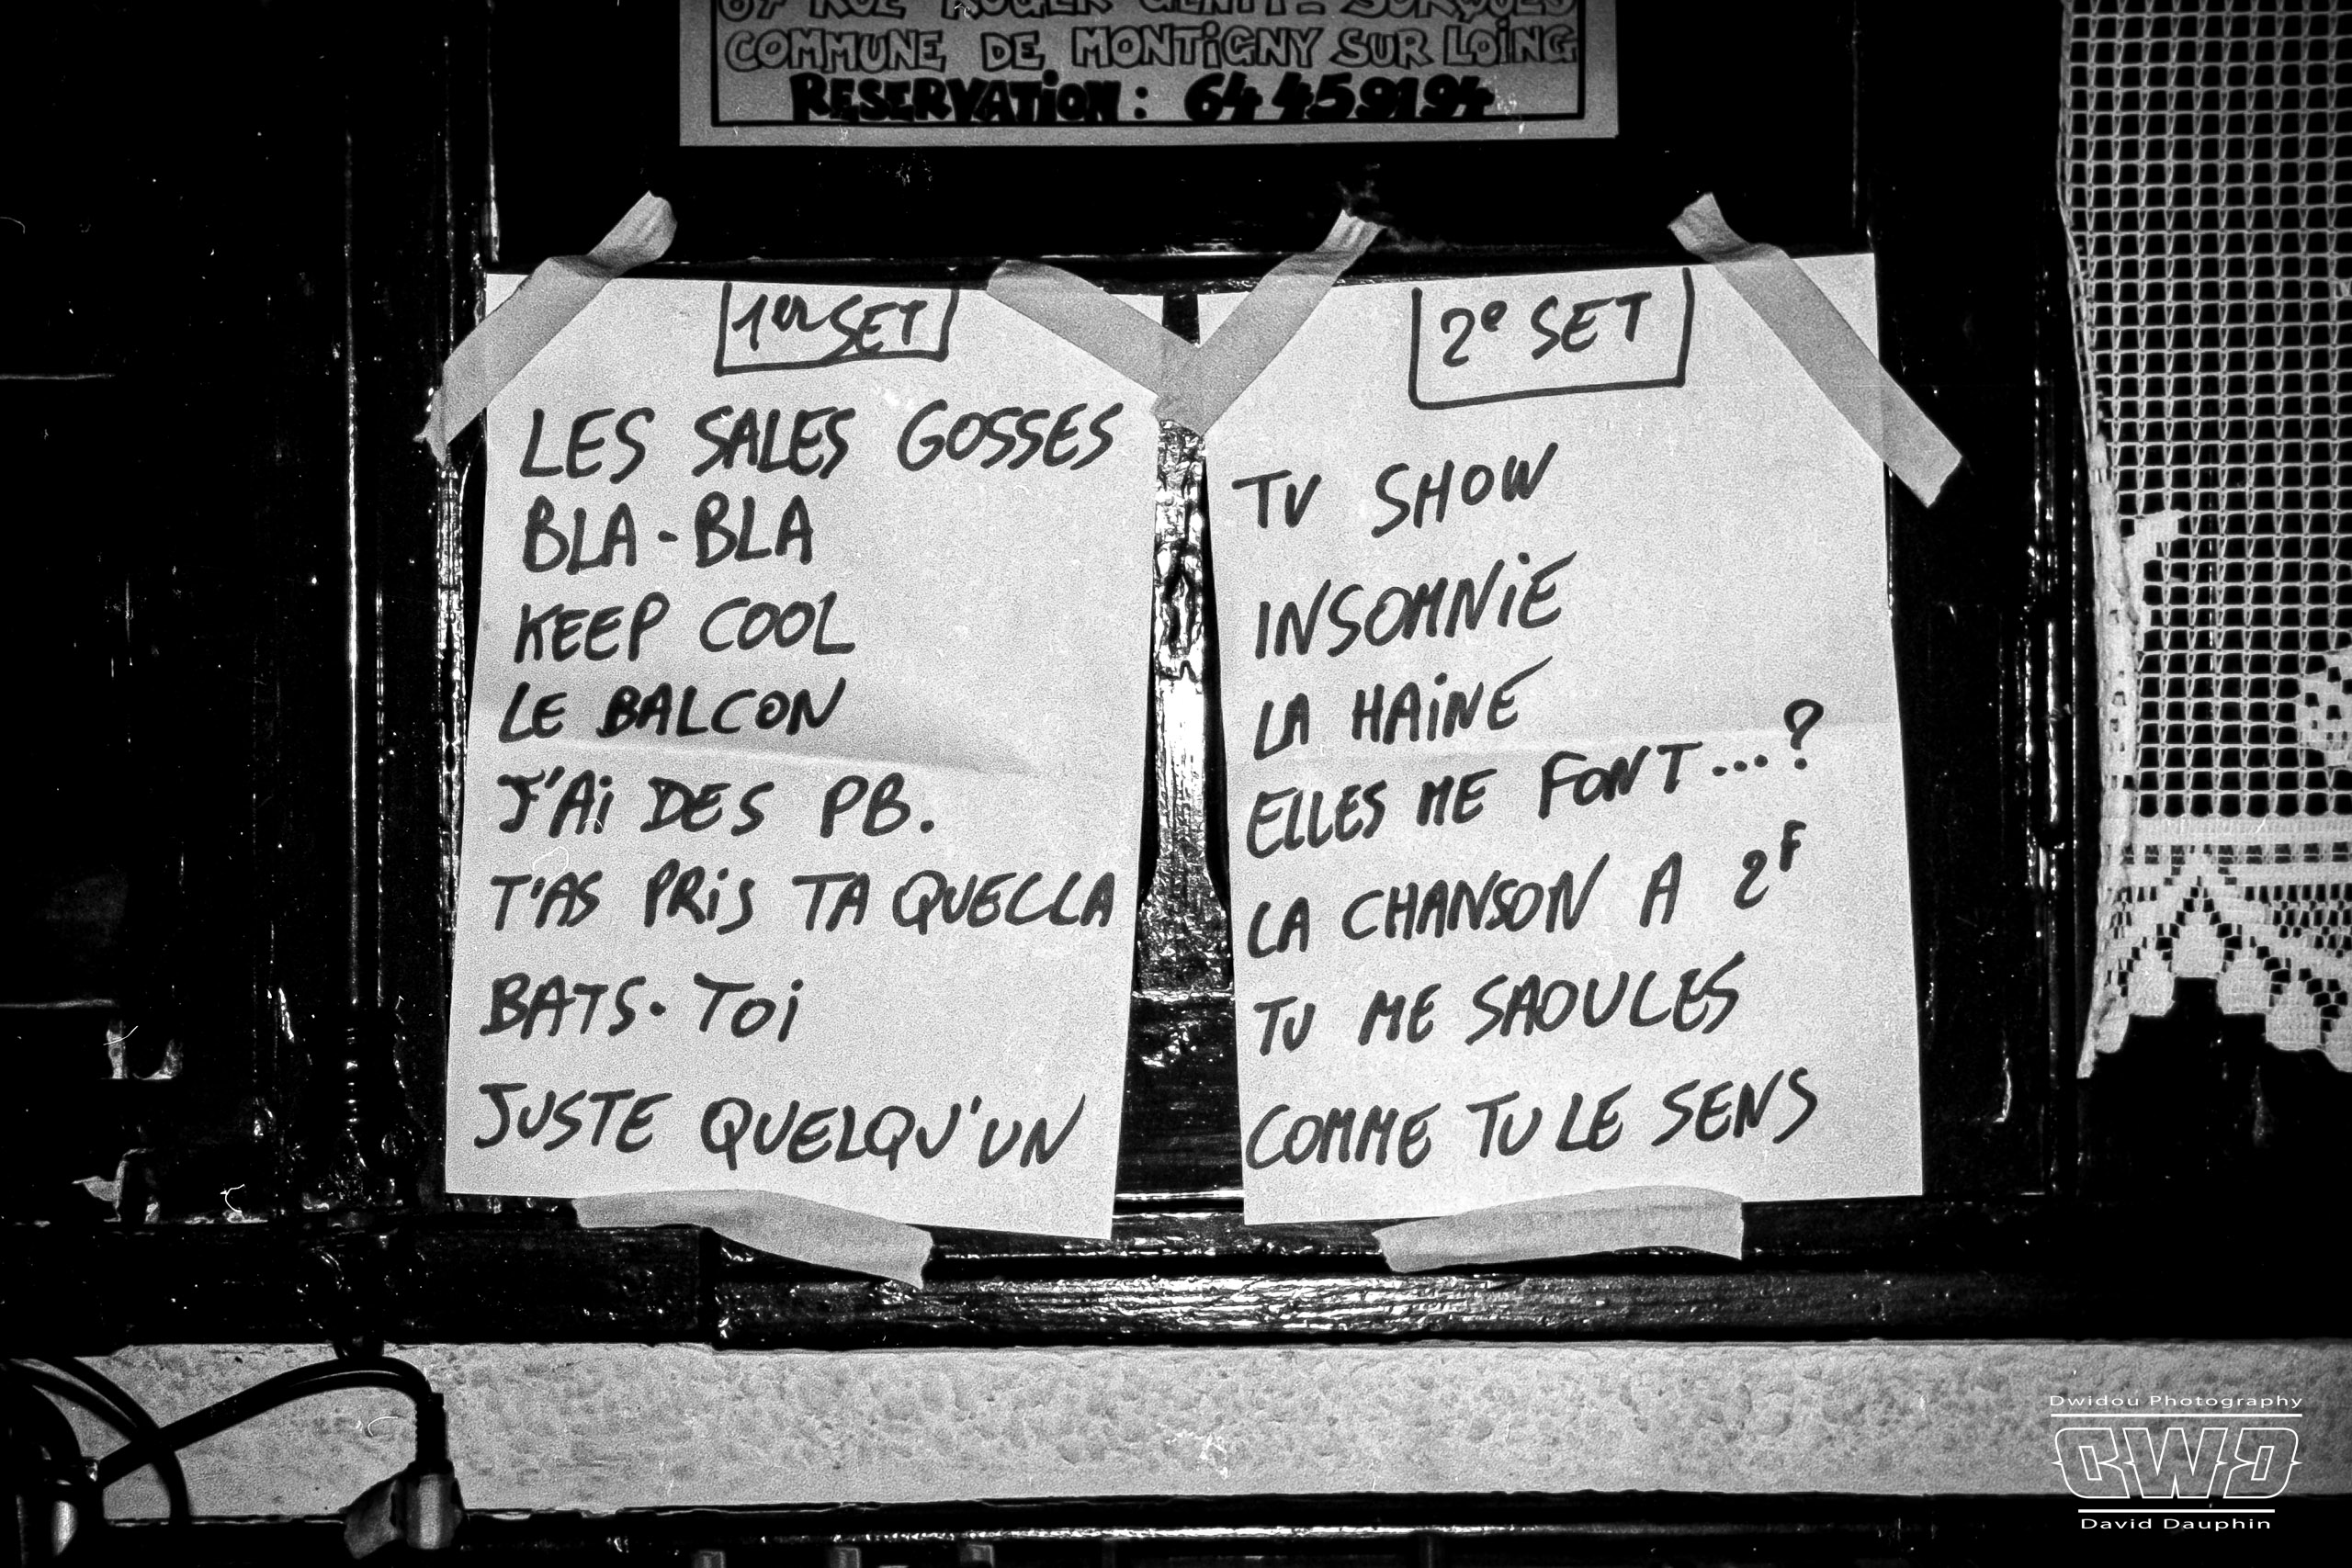 67 RUE ROGER GENTY - SORQUES
COMMUNE DE MONTIGNY SUR LOING
RESERVATION : 64 459194
1er SET
LES SALES GOSSES
BLA-BLA
KEEP COOL
LE BALCON
J'AI DES PB.
T'AS PRIS TA QUECLLA
BATS-TOI
JUSTE QUELQU'UN
2e SET
TV SHOW
INSOMNIE
LA HAINE
ELLES ME FONT...?
LA CHANSON A 2F
TU ME SAOULES
COMME TU LE SENS
Dwidou Photography
DWD
David Dauphin